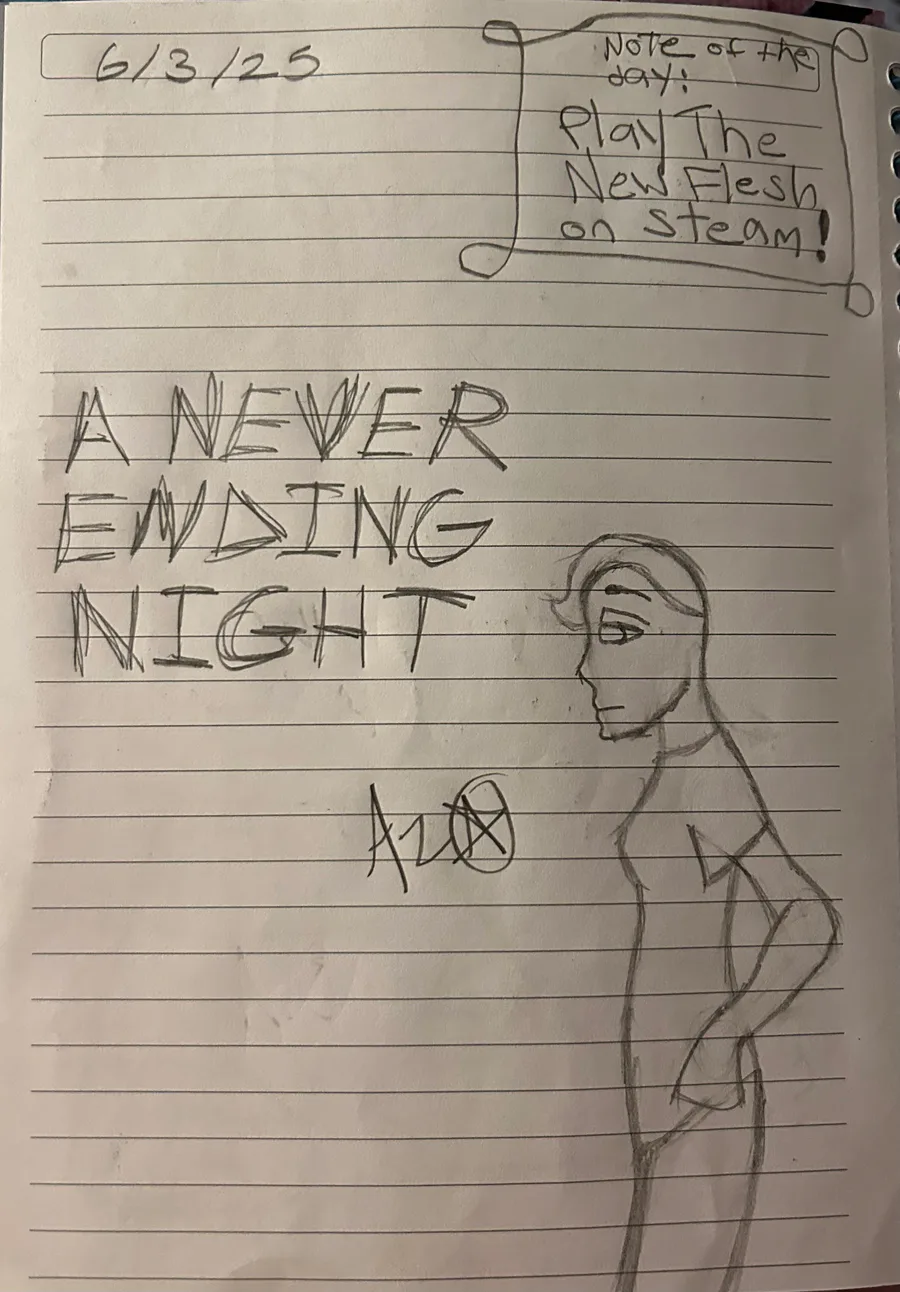 6/3/25
Note of the
day:
Play The
New Flesh
on Steam!
A NEVER
ENDING
NIGHT